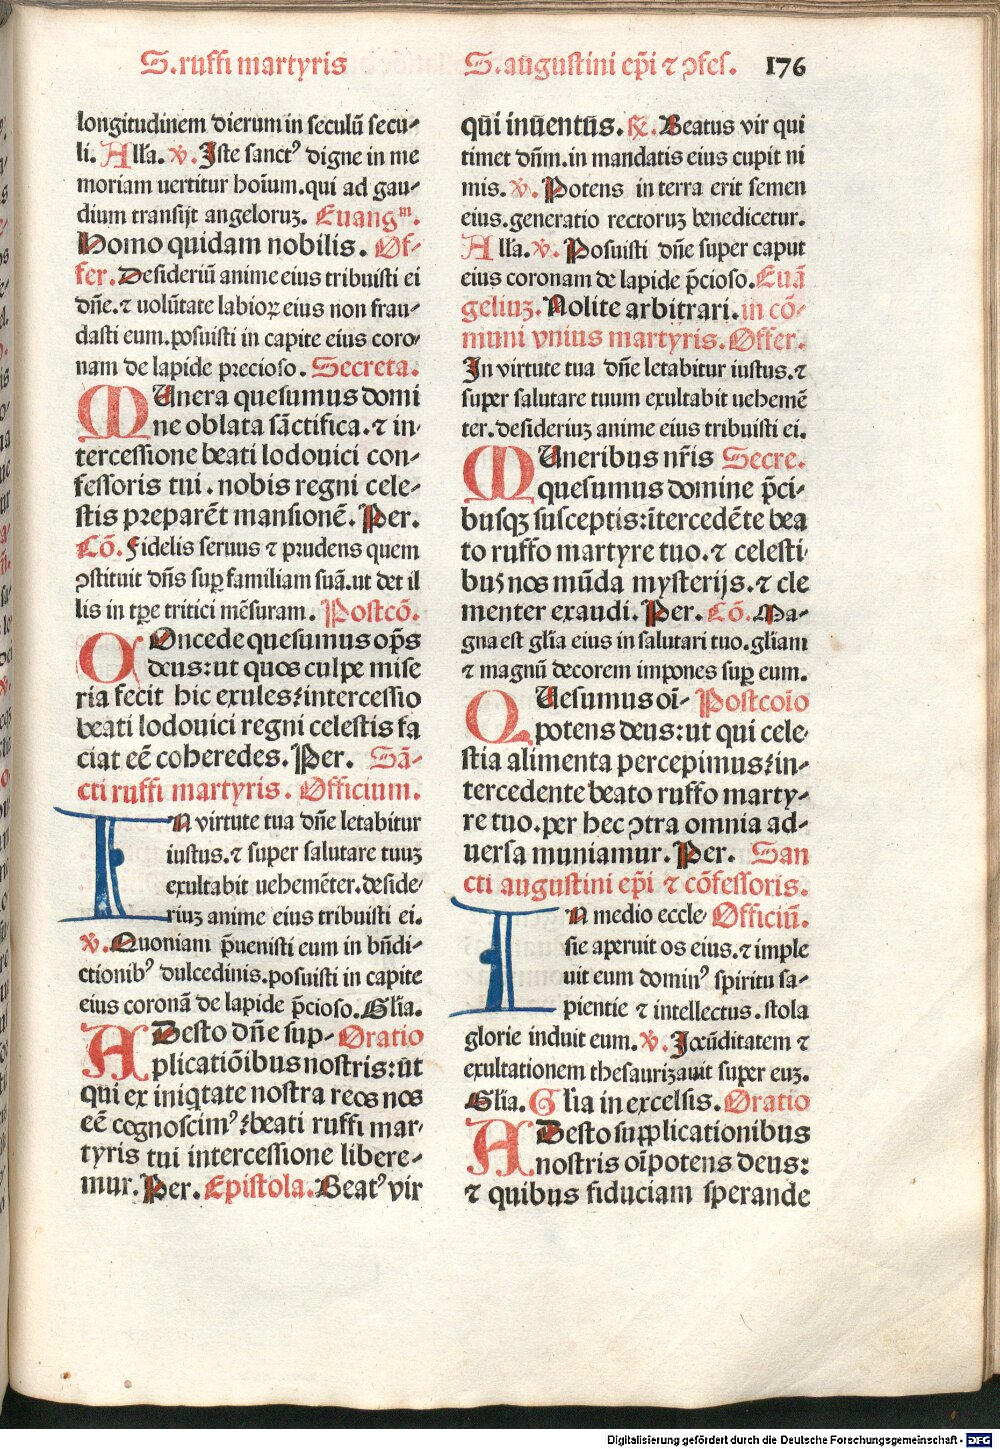 S. ruffi martyris
S. augustini ep̄i ⁊ ꝯfeſ.
176
longitudinem dierum in ſeculū ſecu-
li. Alľa. v. Iſte ſanctꝰ digne in me
moriam uertitur hoīum. qui ad gau-
dium tranſijt angeloruꝫ. Euangᵐ.
Homo quidam nobilis. Of-
fer. Deſideriū anime eius tribuiſti ei
dn̄e. ⁊ uolūtate labioꝝ eius non frau-
daſti eum. poſuiſti in capite eius coro-
nam de lapide precioſo. Secreta.
MUnera queſumus domi
ne oblata ſāctifica. ⁊ in-
terceſſione beati lodouici con-
feſſoris tui. nobis regni cele-
ſtis preparēt manſionē. Per.
Cō. Fidelis ſeruus ⁊ prudens quem
ꝯſtituit dn̄s ſuꝑ familiam ſuā. ut det il
lis in tꝑe tritici mēſuram. Poſtcō.
COncede queſumus op̄s
deus: ut quos culpe miſe
ria fecit hic exules: interceſſio
beati lodouici regni celeſtis fa
ciat eē coheredes. Per. Sā-
cti ruffi martyris. Officium.
IN virtute tua dn̄e letabitur
iuſtus. ⁊ super ſalutare tuuꝫ
exultabit uehemēter. deſide-
riuꝫ anime eius tribuiſti ei.
v. Quoniam p̄ueniſti eum in bn̄di-
ctionibꝰ dulcedinis. poſuiſti in capite
eius coronā de lapide p̄cioſo. Glīa.
ADeſto dn̄e ſup- Oratio
plicatiōibus noſtris: ūt
qui ex iniq̇tate noſtra reos nos
eē cognoſcimꝰ: beati ruffi mar-
tyris tui interceſſione libere-
mur. Per. Epiſtola. Beatꝰ vir
qūi inūentūs. R. Beatus vir qui
timet dn̄m. in mandatis eius cupit ni
mis. v. Potens in terra erit ſemen
eius. generatio rectoruꝫ benedicetur.
Alľa. v. Poſuiſti dn̄e ſuper caput
eius coronam de lapide p̄cioſo. Euā
geliuꝫ. Nolite arbitrari. in cō-
muni vnius martyris. Offer.
In virtute tua dn̄e letabitur iuſtus. ⁊
ſuper ſalutare tuum exultabit uehemē
ter. deſideriuꝫ anime eius tribuiſti ei.
MUneribus nr̄is Secre.
queſumus domine p̄ci-
buſqꝫ ſuſceptis: īntercedēte bea
to ruffo martyre tuo. ⁊ celeſti-
buꝫ nos mūda myſterijs. ⁊ cle
menter exaudi. Per. Cō. Ma-
gna eſt glīa eius in ſalutari tuo. glīam
⁊ magnū decorem impones ſuꝑ eum.
QUeſumus oī- Poſtcoīo
potens deus: ut qui cele-
ſtia alimenta percepimus: in-
tercedente beato ruffo marty-
re tuo. per hec ꝯtra omnia ad-
uerſa muniamur. Per. San
cti auguſtini ep̄i ⁊ cōfeſſoris.
IN medio eccle- Officiū.
ſie aperuit os eius. ⁊ imple
uit eum dominꝰ ſpiritu ſa-
pientie ⁊ intellectus. ſtola
glorie induit eum. v. Iocūditatem ⁊
exultationem theſauriꝫauit ſuper euꝫ.
Glīa. Glīa in excelſis. Oratio
ADeſto ſupplicationibus
noſtris oīpotens deus:
⁊ quibus fiduciam ſperande
Digitalisierung gefördert durch die Deutsche Forschungsgemeinschaft - DFG